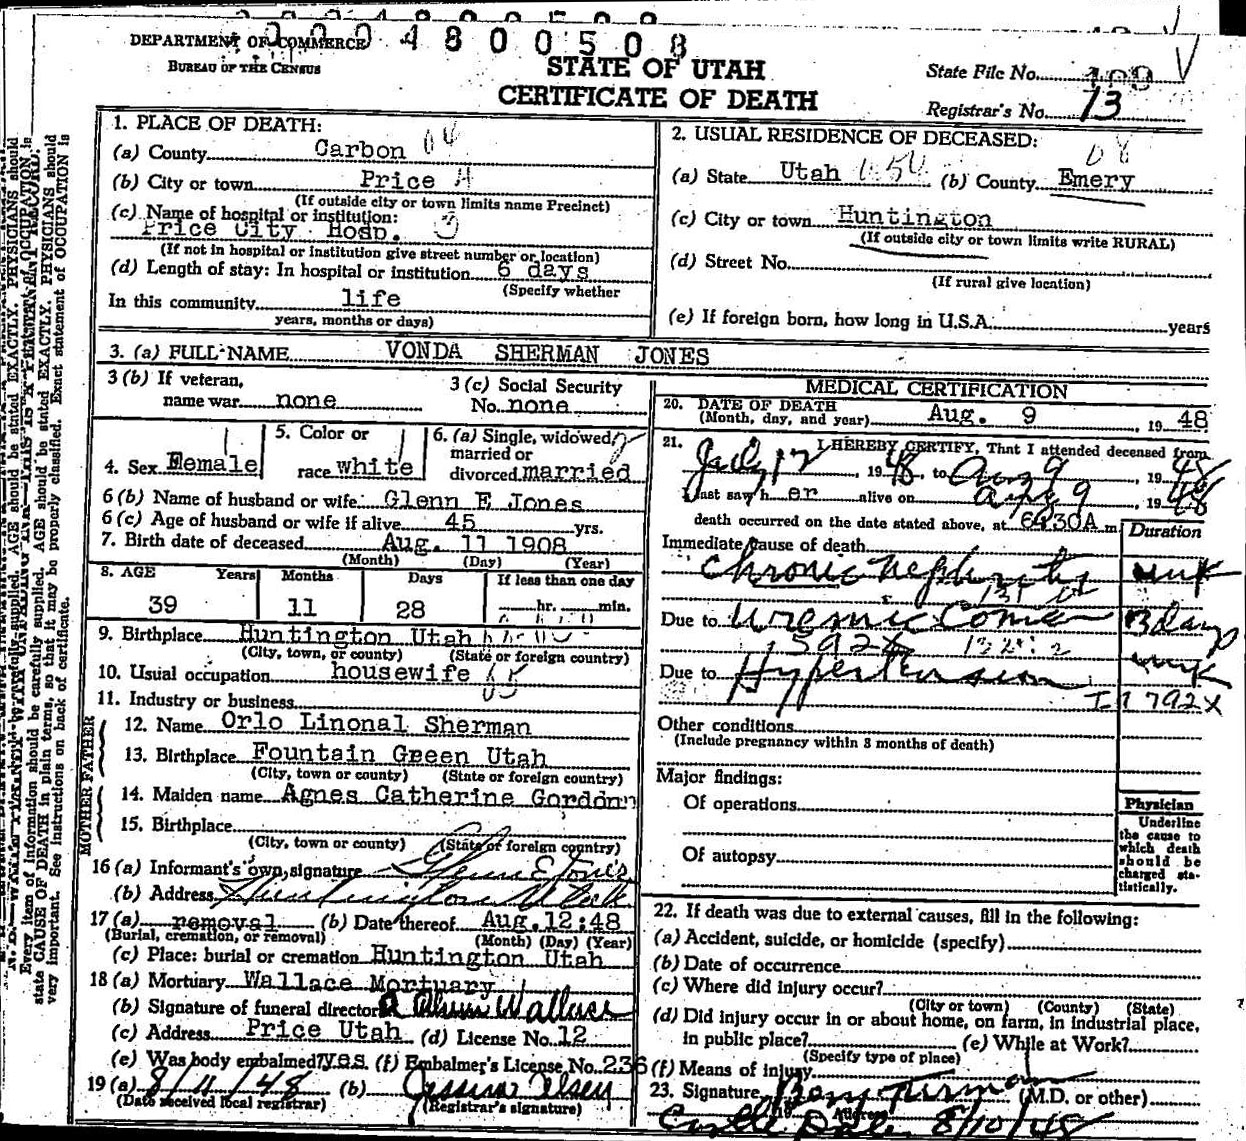 0004800508
DEPARTMENT OF COMMERCE
BUREAU OF THE CENSUS
STATE OF UTAH
CERTIFICATE OF DEATH
State File No.
Registrar's No. 13
1. PLACE OF DEATH:
(a) County Carbon 04
(b) City or town Price
(If outside city or town limits name Precinct)
(c) Name of hospital or institution:
Price City Hosp. 3
(If not in hospital or institution give street number or location)
(d) Length of stay: In hospital or institution 6 days
(Specify whether
In this community life
years, months or days)
2. USUAL RESIDENCE OF DECEASED:
(a) State Utah (b) County Emery
(c) City or town Huntington
(If outside city or town limits write RURAL)
(d) Street No.
(If rural give location)
(e) If foreign born, how long in U.S.A. years
3. (a) FULL NAME VONDA SHERMAN JONES
3 (b) If veteran, name war none
3 (c) Social Security No. none
4. Sex Female
5. Color or race white
6. (a) Single, widowed, married or divorced married
6 (b) Name of husband or wife: Glenn E Jones
6 (c) Age of husband or wife if alive 45 yrs.
7. Birth date of deceased Aug. 11 1908
(Month) (Day) (Year)
8. AGE Years Months Days If less than one day
39 11 28 hr. min.
9. Birthplace Huntington Utah
(City, town, or county) (State or foreign country)
10. Usual occupation housewife
11. Industry or business
FATHER
12. Name Orlo Linonal Sherman
13. Birthplace Fountain Green Utah
(City, town or county) (State or foreign country)
MOTHER
14. Maiden name Agnes Catherine Gordon
15. Birthplace
(City, town or county) (State or foreign country)
16 (a) Informant's own signature Glenn E Jones
(b) Address Huntington Utah
17 (a) removal (b) Date thereof Aug. 12:48
(Burial, cremation, or removal) (Month) (Day) (Year)
(c) Place: burial or cremation Huntington Utah
18 (a) Mortuary Wallace Mortuary
(b) Signature of funeral director Wallace
(c) Address Price Utah (d) License No. 12
(e) Was body embalmed? yes (f) Embalmer's License No. 236
19 (a) 8/11/48 (b)
(Date received local registrar) (Registrar's signature)
MEDICAL CERTIFICATION
20. DATE OF DEATH
(Month, day, and year) Aug. 9, 19 48
21. I HEREBY CERTIFY, That I attended deceased from
July 12, 19 48, to Aug 9, 19 48
I last saw h er alive on Aug 9, 19 48
death occurred on the date stated above, at 6:30A m
Duration
Immediate cause of death
Chronic Nephritis unk
Due to Uremic Coma 3 days
592X
Due to Hypertension unk
792X
Other conditions
(Include pregnancy within 3 months of death)
Major findings:
Of operations
Of autopsy
Physician
Underline
the cause to
which death
should be
charged sta-
tistically.
22. If death was due to external causes, fill in the following:
(a) Accident, suicide, or homicide (specify)
(b) Date of occurrence
(c) Where did injury occur?
(City or town) (County) (State)
(d) Did injury occur in or about home, on farm, in industrial place,
in public place? (e) While at Work?
(Specify type of place)
(f) Means of injury
23. Signature (M.D. or other)
Castle Dale 8/10/48
Every item of information should be carefully supplied. AGE should be stated EXACTLY. PHYSICIANS should
state CAUSE OF DEATH in plain terms, so that it may be properly classified. Exact statement of OCCUPATION is
very important. See instructions on back of certificate.